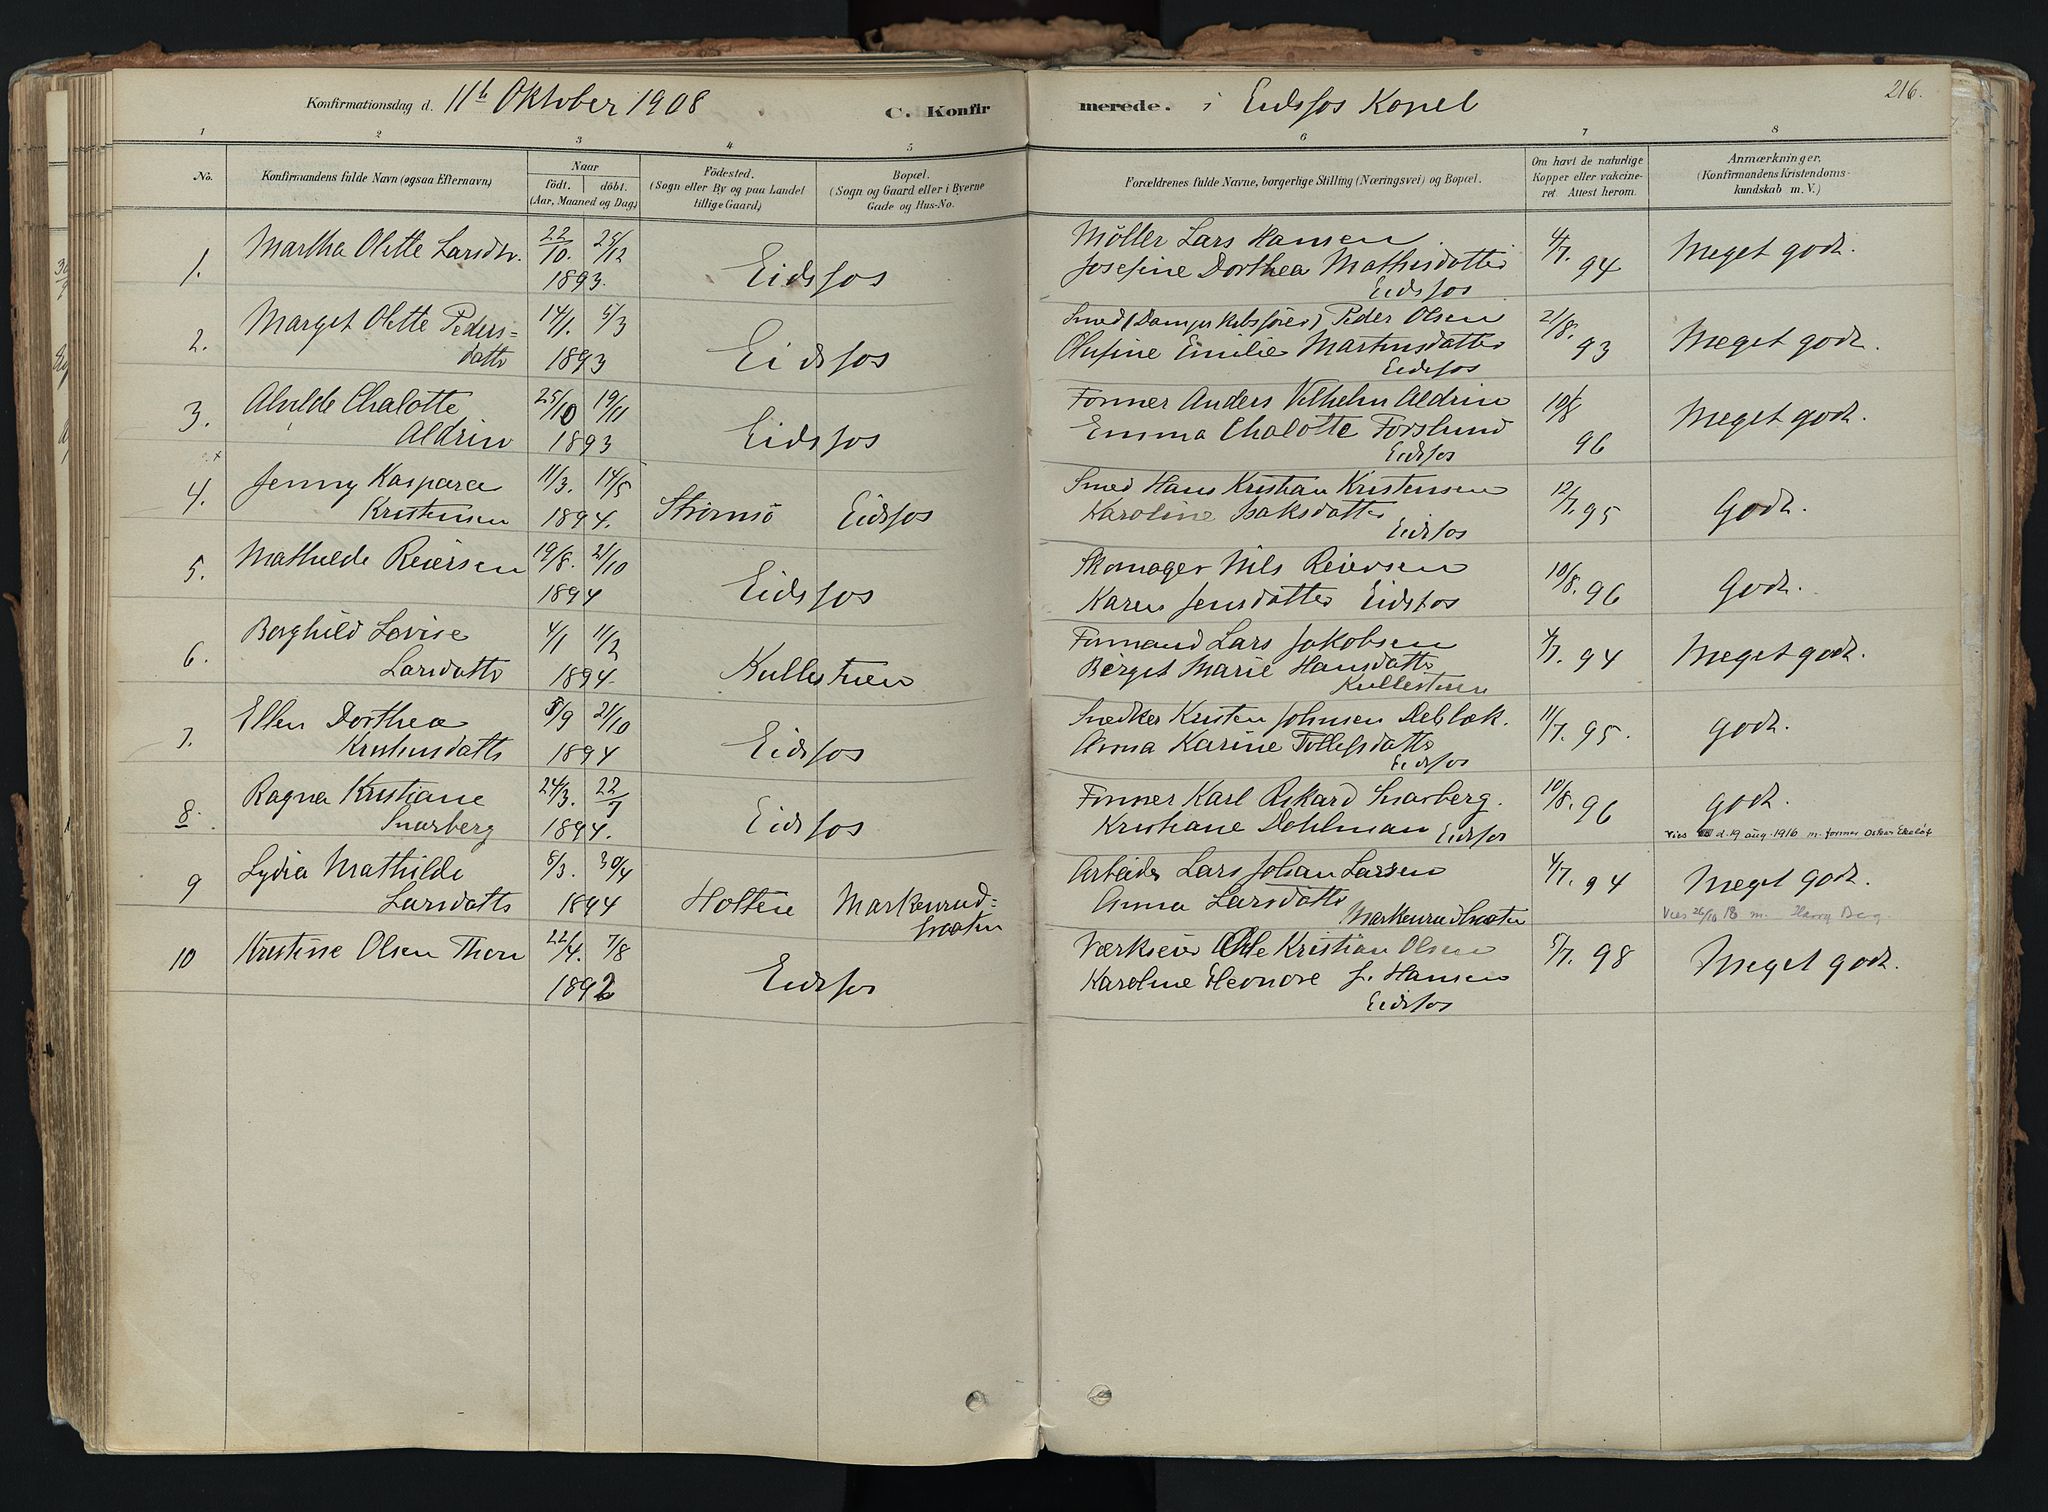 Konfirmationsdag d. 11te Oktober 1908 C. Konfir merede. i Eidsfos Kapel 216.
1 2 3 4 5 6 7 8
No. Konfirmandens fulde Navn (ogsaa Efternavn) Naar födt. döbt. (Aar, Maaned og Dag) Födested. (Sogn eller By og paa Landet tillige Gaard) Bopæl. (Sogn og Gaard eller i Byerne Gade og Hus-No. Forældrenes fulde Navne, borgerlige Stilling (Næringsvei) og Bopæl. Om havt de naturlige Kopper eller vakcineret Attest herom. Anmærkninger. (Konfirmandens Kristendomskundskab m. V.)
1. Martha Olette Larsdtr. 22/10. 25/12 1893. Eidsfos Möller Lars Hansen 4/7. 94 Meget godt.
Josefine Dorthea Mathisdatter
Eidsfos
2. Marget Olette Peders= 14/1. 5/3 Eidsfos Smed (Dampskibsförer) Peder Olsen 21/8. 93 Meget godt.
datter 1893 Olufine Emilie Martinsdatter
Eidsfos
3. Alvilde Chalotte 25/10 19/11 Eidsfos Former Anders Vilhelm Aldrin 10/8 96 Meget godt.
Aldrin 1893 Emma Chalotte Forslund
Eidsfos
4. Jenny Kaspara 11/3. 14/5 Strömsö Eidsfos Smed Hans Kristian Kristensen 12/7. 95 Godt.
Kristensen 1894. Karoline Isaksdatter
Eidsfos
5. Mathilde Reiersen 19/8. 21/10 Eidsfos Skomager Nils Reiersen 10/8. 96 Godt.
1894 Karen Jensdatter Eidsfos
6. Borghild Lovise 4/1 11/2 Kullestuen Formand Lars Jakobsen 4/7. 94 Meget godt.
Larsdatter 1894. Berget Marie Hansdatter
Kullestuen
7. Ellen Dorthea 8/9 21/10 Eidsfos Snedker Kristen Johnsen 11/7. 95. godt.
Kristensdatter 1894 Anna Karine Tollefsdatter
Eidsfos
8. Ragna Kristiane 24/3. 22/7 Eidsfos Former Karl Rikard Snarberg. 10/8. 96 godt.
Snarberg 1894. Kristiane Dohlman Eidsfos Vies d. 19 aug. 1916 m. former Oskar
9 Lydia Mathilde 8/3. 30/4 Holtene Markerud= Arbeider Lars Johan Larsen 4/7. 94 Meget godt.
Larsdatter 1894 Anna Larsdatter Vies 26/10 18 m. Harry Berg
10 Kristine Olsen Thon 22/4. 7/8 Eidsfos Værkseier Ole Kristian Olsen 5/7. 98 Meget godt.
1892 Karoline Eleonore f. Hansen
Eidsfos